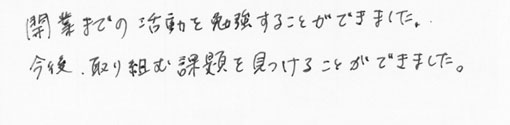 開業までの活動を勉強することができました。
今後、取り組む課題を見つけることができました。